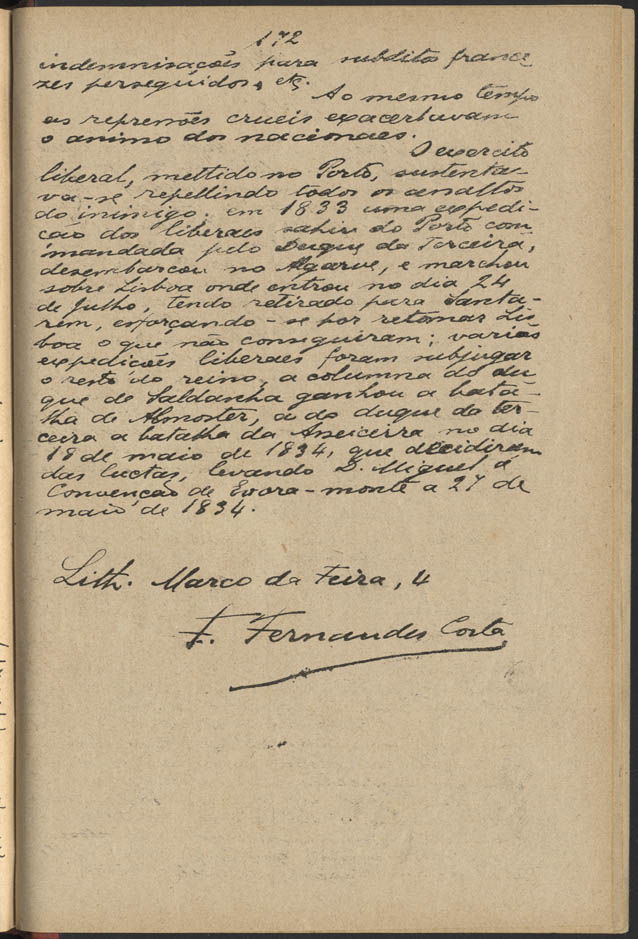 172
indemnisações para subditos france
zes perseguidos, etc.
Ao mesmo tempo
as repressões crueis exacerbavam
o animo dos nacionaes.
O exercito
liberal, mettido no Porto, sustenta-
va-se repellindo todos os assaltos
do inimigo; em 1833 uma expedi-
ção dos liberaes sahiu do Porto com
mandada pelo Duque da Terceira,
desembarcou no Algarve, e marchou
sobre Lisboa onde entrou no dia 24
de Julho, tendo retirado para Santa-
rem, esforçando-se por retomar Lis
boa o que não conseguiram; varias
expedições liberaes foram subjugar
o resto do reino, a columna do du
que de Saldanha ganhou a bata-
lha de Almoster, a do duque da ter-
ceira a batalha da Asseiceira no dia
18 de maio de 1834, que decidiram
das luctas, levando D. Miguel á
Convenção de Evora-monte a 27 de
maio de 1834.
Lith. Marco da Feira, 4
F. Fernandes Costa